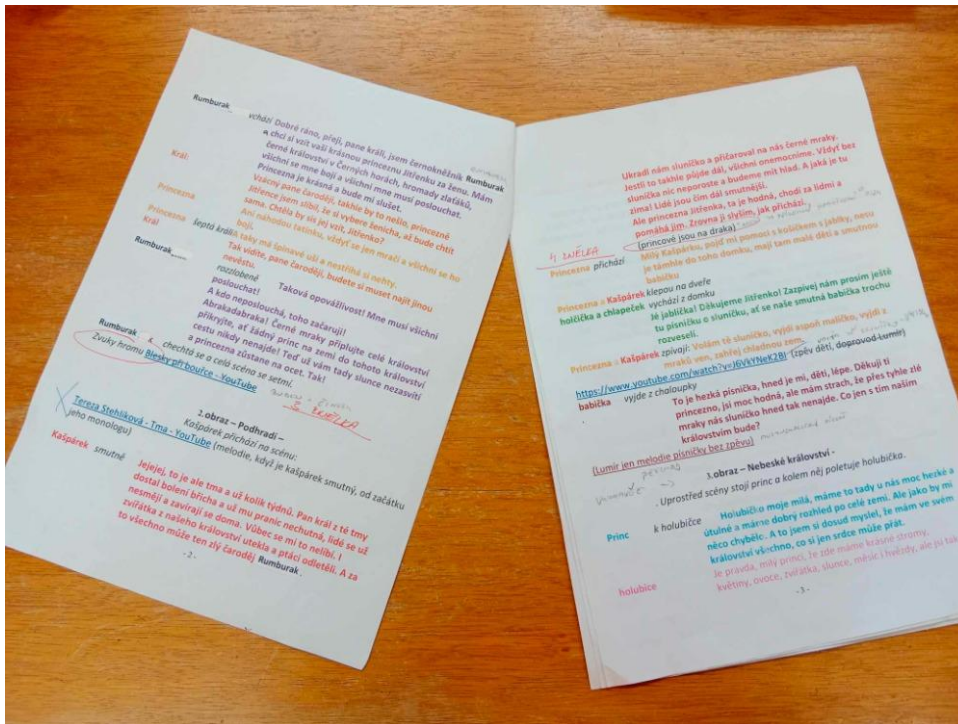 Rumburak vchází Dobré ráno, přeji, pane králi, jsem černokněžník Rumburak
a chci si vzít vaši krásnou princeznu Jitřenku za ženu. Mám
černé království v Černých horách, hromady zlaťáků,
všichni se mne bojí a všichni mne musí poslouchat.
Princezna je krásná a bude mi slušet.
Král: Vzácný pane čaroději, takhle by to nešlo, princezně
Jitřence jsem slíbil, že si vybere ženicha, až bude chtít
sama. Chtěla by sis jej vzít, Jitřenko?
Princezna Ani náhodou tatínku, vždyť se jen mračí a všichni se ho
bojí.
Princezna šeptá králi
A taky má špinavé uši a nestříhá si nehty.
Král Tak vidíte, pane čaroději, budete si muset najít jinou
nevěstu.
Rumburak rozzlobeně Taková opovážlivost! Mne musí všichni
poslouchat!
A kdo neposlouchá, toho začaruji!
Abrakadabraka! Černé mraky připlujte celé království
přikryjte, ať žádný princ na zemi do tohoto království
cestu nikdy nenajde! Teď už vám tady slunce nezasvítí
a princezna zůstane na ocet. Tak!
Rumburak chechtá se a celá scéno se setmí.
Zvuky hromu Blesky při bouřce - YouTube
ZNĚLKA
2.obraz – Podhradí –
Kašpárek přichází na scénu:
Tereza Stehlíková - Tma - YouTube (melodie, když je kašpárek smutný, od začátku
jeho monologu)
Kašpárek smutně
Jejejej, to je ale tma a už kolik týdnů. Pan král z té tmy
dostal bolení břicha a už mu pranic nechutná, lidé se už
nesmějí a zavírají se doma. Vůbec se mi to nelíbí. I
zvířátka z našeho království utekla a ptáci odletěli. A za
to všechno může ten zlý čaroděj Rumburak.
- 2 -
Ukradl nám sluníčko a přičaroval na nás černé mraky.
Jestli to takhle půjde dál, všichni onemocníme. Vždyť bez
sluníčka nic neporoste a budeme mít hlad. A jaká je tu
zima! Lidé jsou čím dál smutnější.
Ale princezna Jitřenka, ta je hodná, chodí za lidmi a
pomáhá jim. Zrovna ji slyším, jak přichází.
(princové jsou na draka)
4 ZNĚLKA
Princezna přichází Milý Kašpárku, pojď mi pomoci s košíčkem s jablky, nesu
je támhle do toho domku, mají tam malé děti a smutnou
babičku
Princezna a Kašpárek klepou na dveře
holčička a chlapeček vychází z domku
Jé jablíčka! Děkujeme Jitřenko! Zazpívej nám prosím ještě
tu písničku o sluníčku, ať se naše smutná babička trochu
rozveselí.
Princezna a Kašpárek zpívají: Volám tě sluníčko, vyjdi aspoň maličko, vyjdi z
mraků ven, zahřej chladnou zem.
https://www.youtube.com/watch?v=J6VkYNeK2BI (zpěv dětí, doprovod Lumír)
babička vyjde z chaloupky
To je hezká písnička, hned je mi, děti, lépe. Děkuji ti
princezno, jsi moc hodná, ale mám strach, že přes tyhle zlé
mraky nás sluníčko hned tak nenajde. Co jen s tím naším
královstvím bude?
(Lumír jen melodie písničky bez zpěvu)
3.obraz – Nebeské království -
. Uprostřed scény stojí princ a kolem něj poletuje holubička.
Princ k holubičce Holubičko moje milá, máme to tady u nás moc hezké a
útulné a máme dobrý rozhled po celé zemi. Ale jako by mi
něco chybělo. A to jsem si dosud myslel, že mám ve svém
království všechno, co si jen srdce může přát.
holubice Je pravda, milý princi, že zde máme krásné stromy,
květiny, ovoce, zvířátka, slunce, měsíc i hvězdy, ale jú tak
-3-